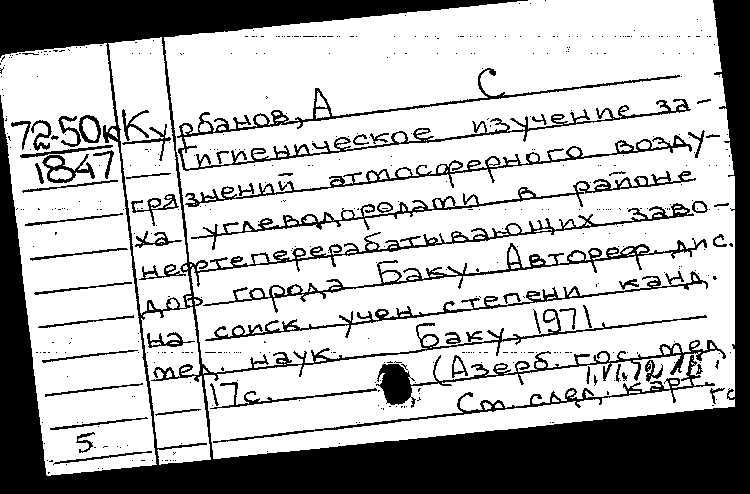 72-50к Курбанов, А С
1847 Гигиеническое изучение за-
грязнений атмосферного возду-
ха углеводородами в районе
нефтеперерабатывающих заво-
дов города Баку. Автореф. дис.
на соиск. учен. степени канд.
мед. наук. Баку, 1971.
17с. (Азерб. гос. мед.
См. след. карт.
5